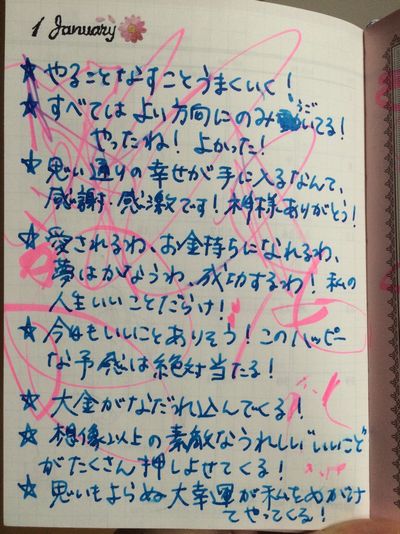 1 January
★ やることなすことうまくいく！
★ すべては よい方向にのみ動いてる！
やったね！ よかった！
★ 思い通りの幸せが手に入るなんて、
感謝・感激です！神様ありがとう！
☆ 愛されるわ、お金持ちになれるわ、
夢はかなうわ、成功するわ！私の
人生いいことだらけ！
☆ 今日もいいことありそう！このハッピー
な予感は絶対当たる！
☆ 大金がなだれ込んでくる！
☆ 想像以上の素敵なうれしい"いいこと"
がたくさん押しよせてくる！
☆ 思いもよらぬ大幸運が私をめがけ
てやってくる！